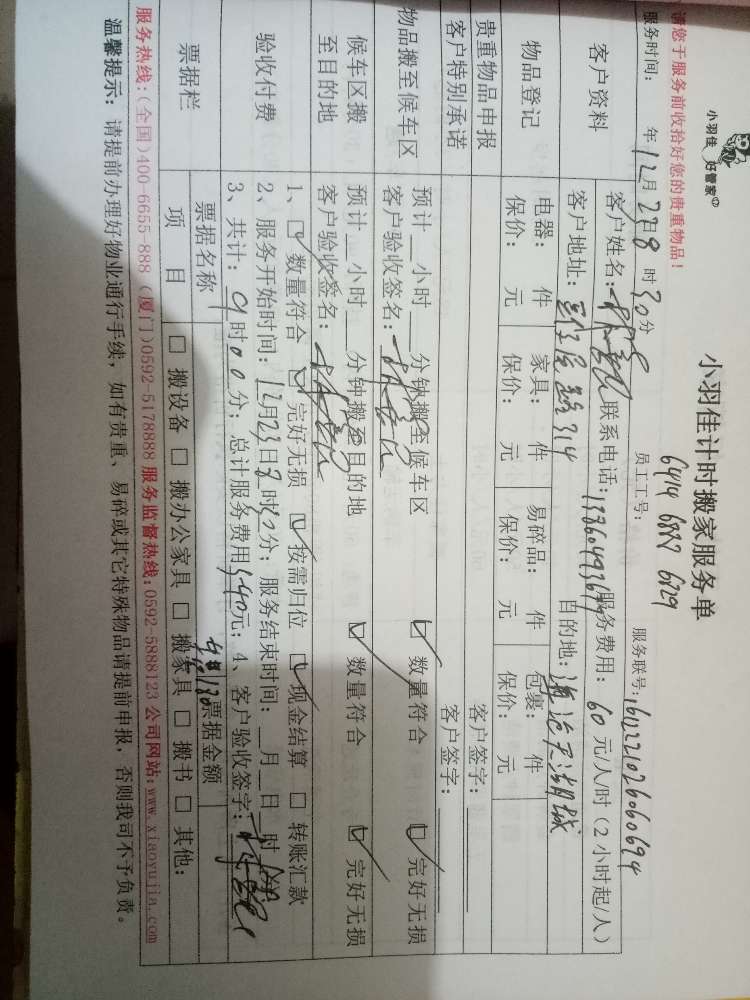 小羽佳 好管家
小羽佳计时搬家服务单
请您于服务前收拾好您的贵重物品！
员工工号：6414 6877 6829
服务联号：161221026060694
服务时间： 年12月23日8时30分
客户资料
客户姓名： 联系电话： 服务费用：60元/人/时（2小时起/人）
客户地址： 目的地：
物品登记
电器： 件 家具： 件 易碎品： 件 包裹： 件
保价： 元 保价： 元 保价： 元 保价： 元
贵重物品申报 客户签字：
客户特别承诺 客户签字：
物品搬至候车区
预计__小时__分钟搬至候车区 ☑ 数量符合 ☑ 完好无损
客户验收签名：
候车区搬至目的地
预计__小时__分钟搬至目的地 ☑ 数量符合 ☑ 完好无损
客户验收签名：
验收付费
1、☑ 数量符合 ☑ 完好无损 ☑ 按需归位 ☑ 现金结算 □ 转账汇款
2、服务开始时间：12月23日8时 分；服务结束时间：__月__日 时 分
3、共计：9时00分；总计服务费用540元；4、客户验收签字：
票据栏
票据名称 票据金额
项 目 □ 搬设备 □ 搬办公家具 □ 搬家具 □ 搬书 □ 其他：
服务热线：(全国)400-6655-888 (厦门)0592-5178888 服务监督热线：0592-5888123 公司网站：www.xiaoyujia.com
温馨提示：请提前办理好物业通行手续，如有贵重、易碎或其它特殊物品请提前申报，否则我司不予负责。